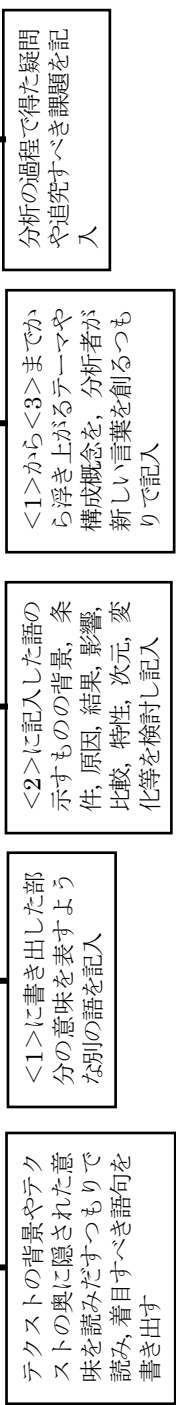 テクストの背景やテク
ストの奥に隠された意
味を読みだすつもりで
読み,着目すべき語句を
書き出す
<1>に書き出した部
分の意味を表すよう
な別の語を記入
<2>に記入した語の
示すものの背景, 条
件, 原因, 結果, 影響,
比較, 特性, 次元, 変
化等を検討し記入
<1>から<3>までか
ら浮き上がるテーマや
構成概念を, 分析者が
新しい言葉を創るつも
りで記入
分析の過程で得た疑問
や追究すべき課題を記
入